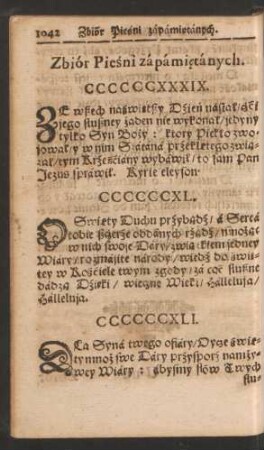 1042 Zbiór Pieśni zápámiętánych.
Zbiór Pieśni zápámiętánych.
CCCCCCXXXIX.
ZE wßech naświetßy Dźień nástał/
jego słußney żaden nie wykonał/ jedyny
tylko Syn Boży: ktory Piekło zwo-
jował/ y w nim Szátáná przeklętego zwią-
zał/ tym Krześćiány wybáwił/ to sam Pan
Jezus spráwił. Kyrie eleyson.
CCCCCCXL.
O Swięty Duchu przybądź/ á Sercá
tobie ßczerze oddánych rządź/ mnożąc
w nich swoje Dáry/ związkiem jedney
Wiáry/ rozmáite narody/ wiedź do świę-
tey w Kośćiele twym zgody/ zá coć słußne
dádzą Dźięki/ wieczne Wieki/ Hálleluja/
Hálleluja.
CCCCCCXLI.
DLa Syná twego ofiáry/ Oycze świę-
ty mnoż swe Dáry przysporz nam ży-
wey Wiáry: ábysmy słow Twych
słu-